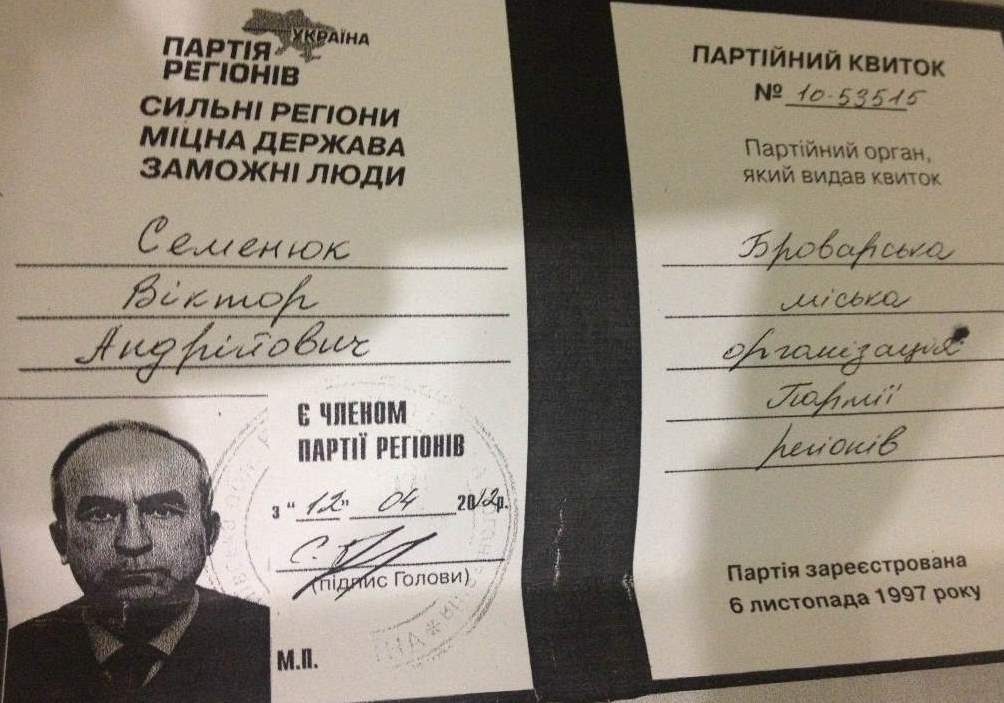 УКРАЇНА
ПАРТІЯ
РЕГІОНІВ
СИЛЬНІ РЕГІОНИ
МІЦНА ДЕРЖАВА
ЗАМОЖНІ ЛЮДИ
Семенюк
Віктор
Андрійович
Є ЧЛЕНОМ
ПАРТІЇ РЕГІОНІВ
з "12" 04 2012р.
(підпис Голови)
М.П.
ПАРТІЙНИЙ КВИТОК
№ 10-53515
Партійний орган,
який видав квиток
Броварська
міська
організація
Партії
регіонів
Партія зареєстрована
6 листопада 1997 року